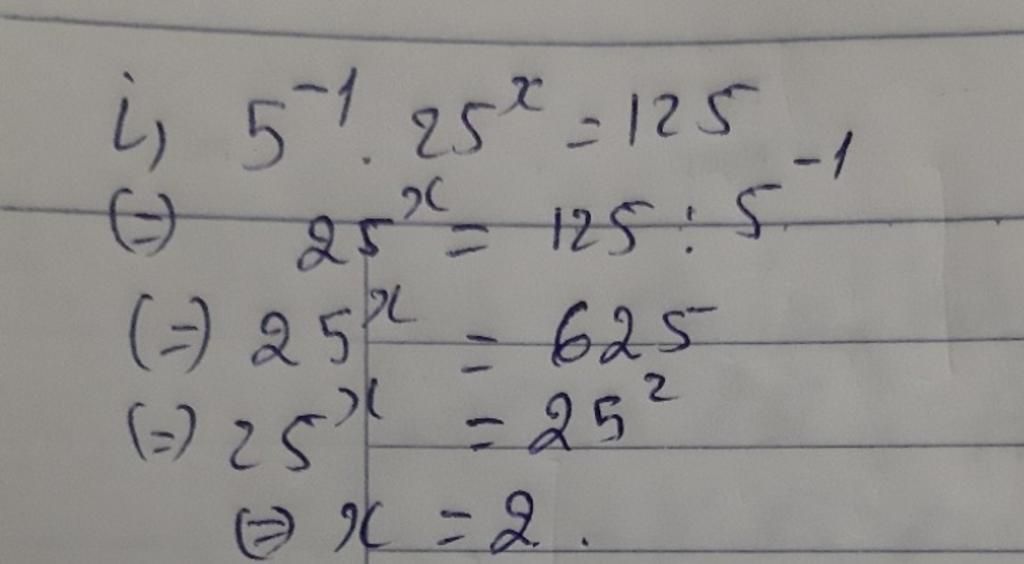 i, 5⁻¹ . 25ˣ = 125
(=) 25ˣ = 125 : 5⁻¹
(=) 25ˣ = 625
(=) 25ˣ = 25²
(=) x = 2.